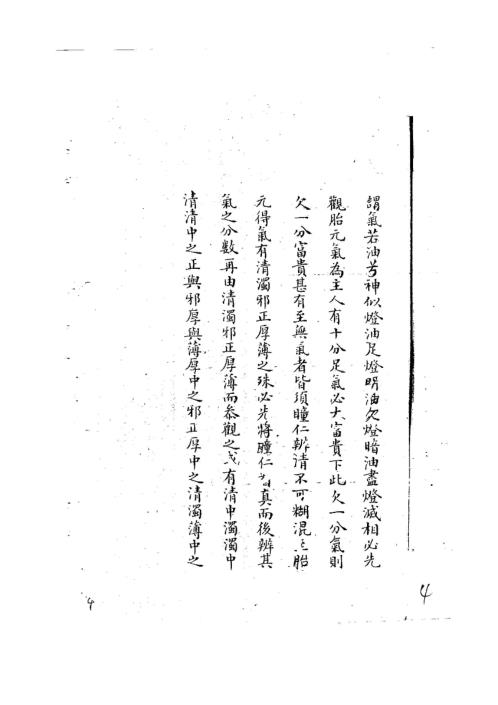 謂氣若油芳神似燈油足燈明油欠燈暗油盡燈滅相必先
觀胎元氣為主人有十分足氣必大富貴下此欠一分氣則
欠一分富貴甚有至無氣者皆須瞳仁辨清不可糊混元胎
元得氣有清濁邪正厚薄之殊必先將瞳仁看真而後辨其
氣之分數再由清濁邪正厚薄而參觀之或有清中濁濁中
清清中之正與邪厚與薄厚中之邪正厚中之清濁薄中之
4
4